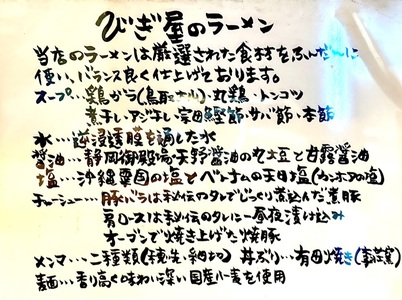 びぎ屋のラーメン
当店のラーメンは厳選された食材をふんだんに
使い、バランス良く仕上げております。
スープ…鶏がら(鳥取大山)・丸鶏・トンコツ
煮干し・アジ干し・宗田鰹節・サバ節・本節
水…逆浸透膜を通した水
醤油…静岡御殿場・天野醤油の丸大豆と甘露醤油
塩…沖縄粟国の塩とベトナムの天日塩(カンホアの塩)
チャーシュー…豚バラは秘伝のタレでじっくり煮込んだ煮豚
肩ロースは秘伝のタレに一昼夜漬け込み
オーブンで焼き上げた焼豚
メンマ…二種類(穂先・細切) 丼ぶり…有田焼き
麺…香り高く味わい深い国産小麦を使用